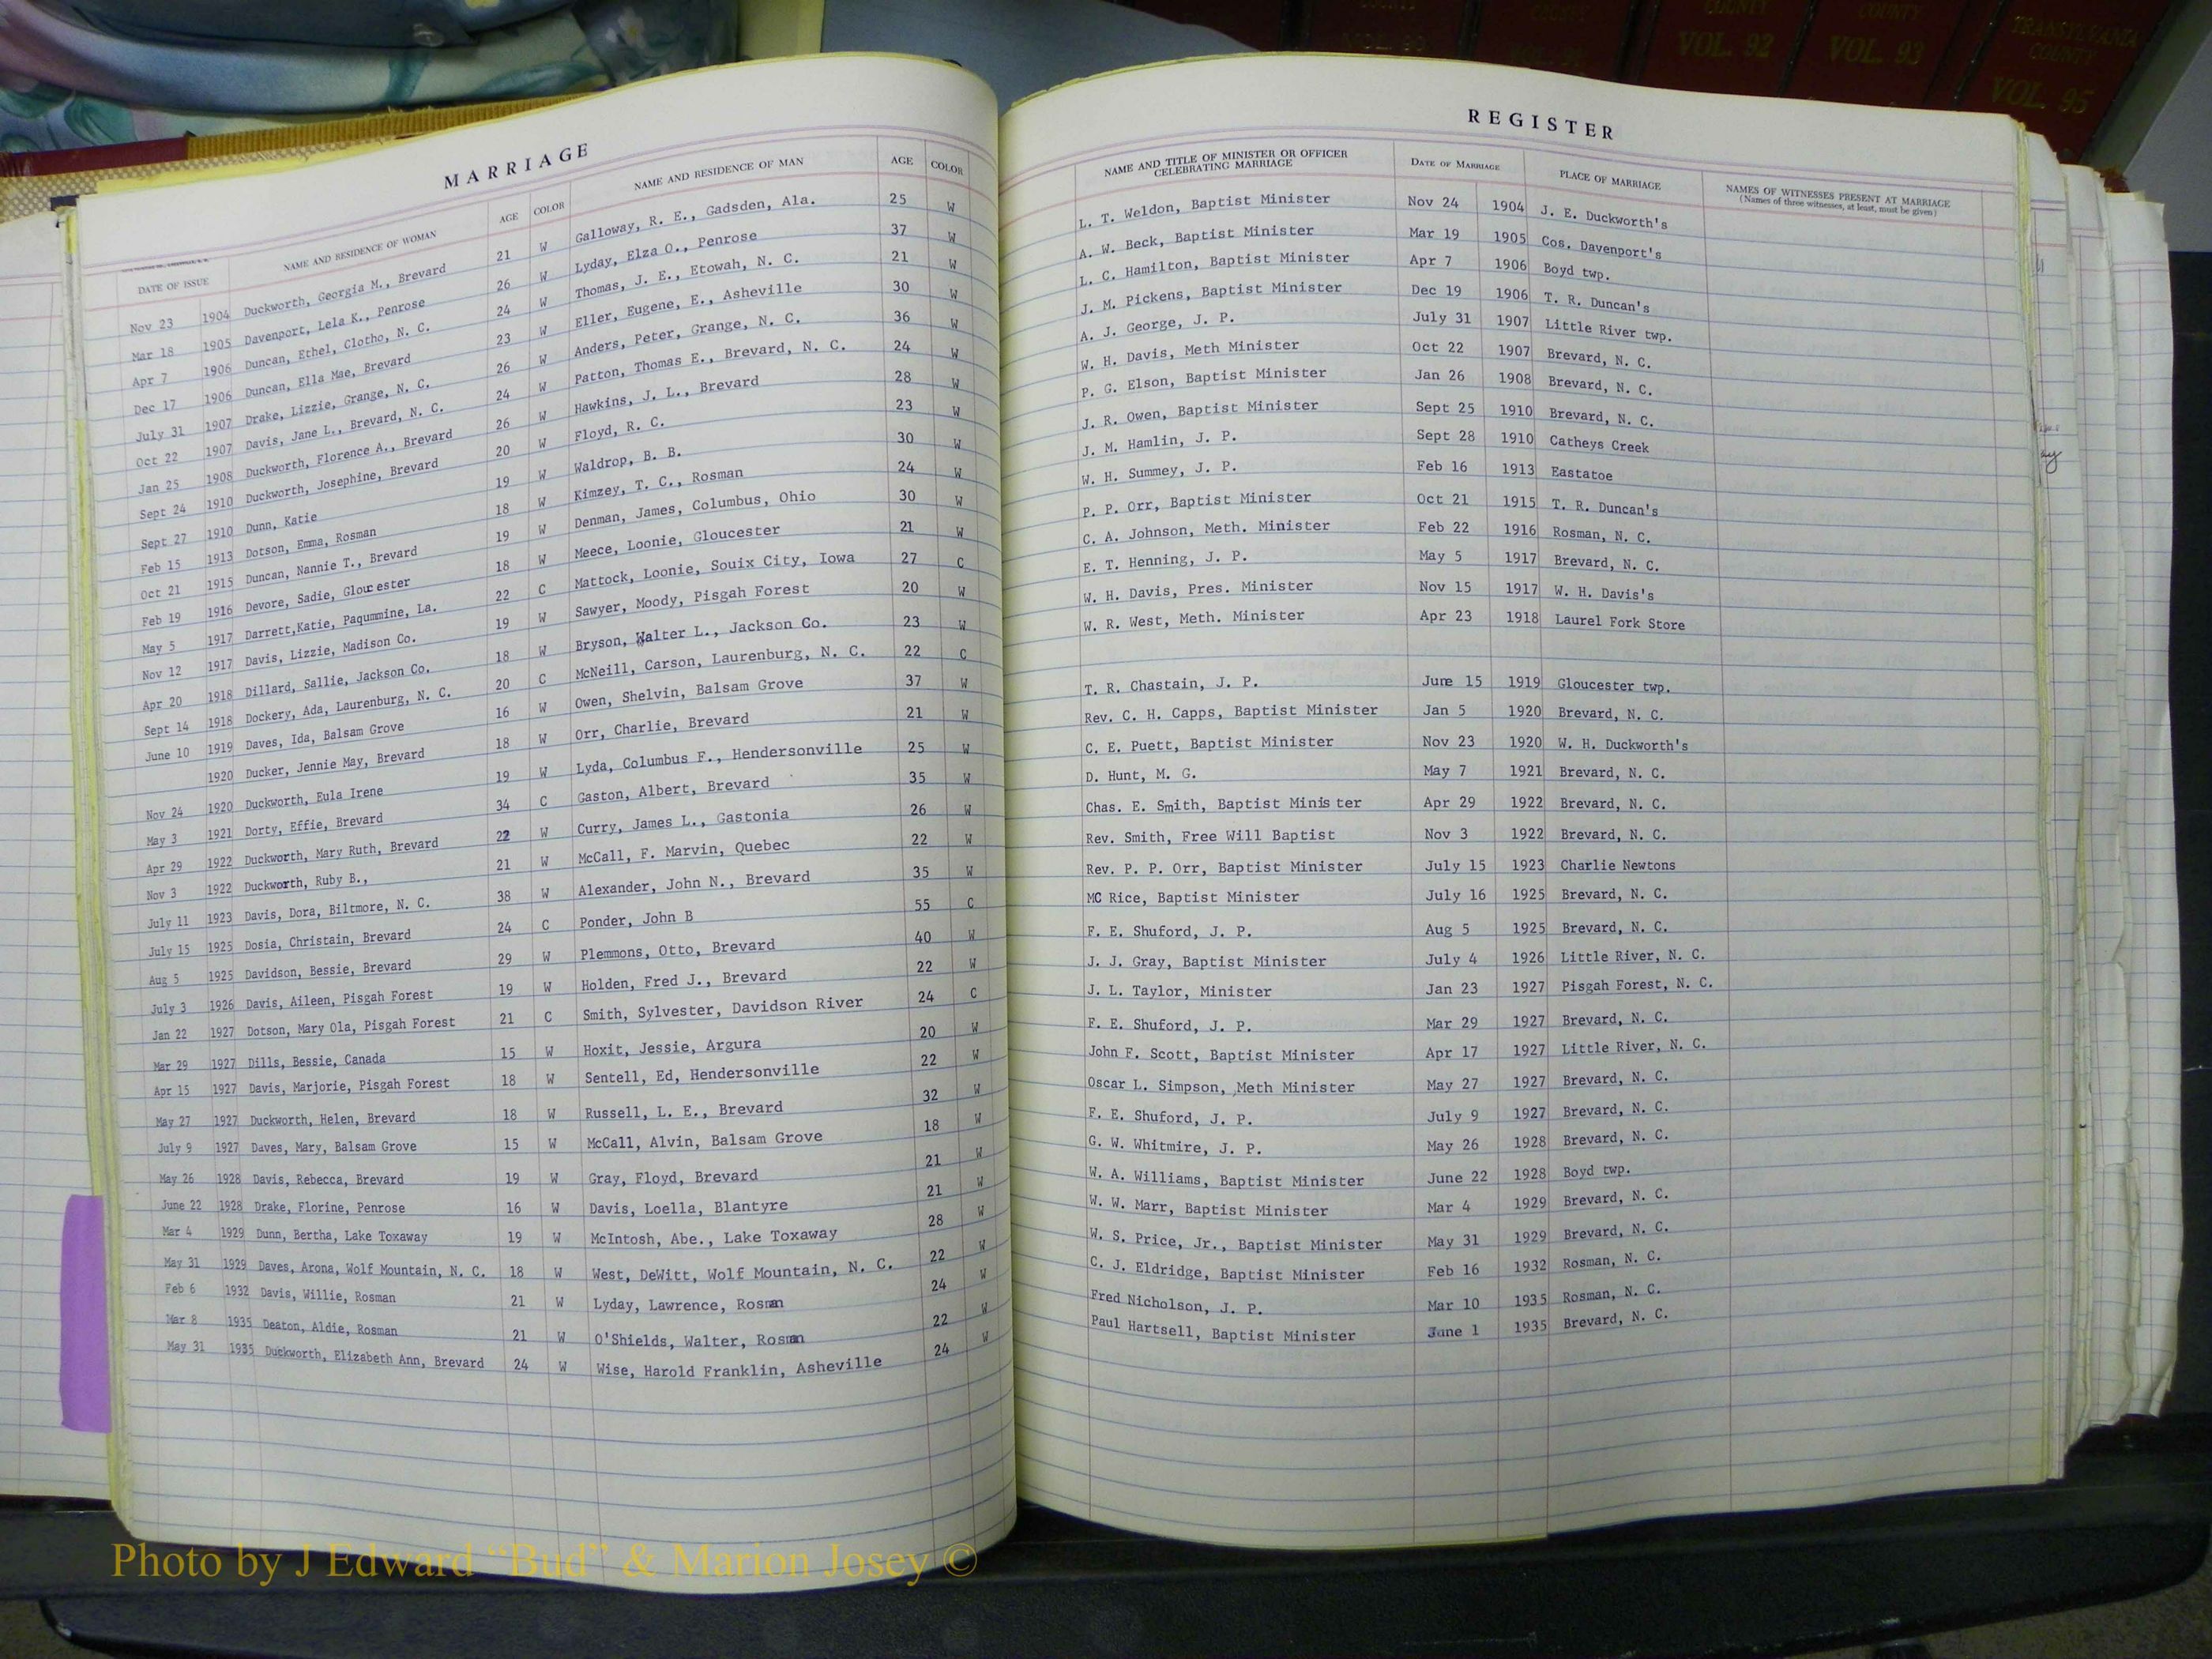 COUNTY
VOL. 92
COUNTY
VOL. 93
TRANSYLVANIA
COUNTY
VOL. 95
MARRIAGE
DATE OF ISSUE NAME AND RESIDENCE OF WOMAN AGE COLOR NAME AND RESIDENCE OF MAN AGE COLOR
Nov 23 1904 Duckworth, Georgia M., Brevard 21 W Galloway, R. E., Gadsden, Ala. 25 W
Mar 18 1905 Davenport, Lela K., Penrose 26 W Lyday, Elza O., Penrose 37 W
Apr 7 1906 Duncan, Ethel, Clotho, N. C. 24 W Thomas, J. E., Etowah, N. C. 21 W
Dec 17 1906 Duncan, Ella Mae, Brevard 23 W Eller, Eugene, E., Asheville 30 W
July 31 1907 Drake, Lizzie, Grange, N. C. 26 W Anders, Peter, Grange, N. C. 36 W
Oct 22 1907 Davis, Jane L., Brevard, N. C. 24 W Patton, Thomas E., Brevard, N. C. 24 W
Jan 25 1908 Duckworth, Florence A., Brevard 26 W Hawkins, J. L., Brevard 28 W
Sept 24 1910 Duckworth, Josephine, Brevard 20 W Floyd, R. C. 23 W
Sept 27 1910 Dunn, Katie 19 W Waldrop, B. B. 30 W
Feb 15 1913 Dotson, Emma, Rosman 18 W Kimzey, T. C., Rosman 24 W
Oct 21 1915 Duncan, Nannie T., Brevard 19 W Denman, James, Columbus, Ohio 30 W
Feb 19 1916 Devore, Sadie, Gloucester 18 W Meece, Loonie, Gloucester 21 W
May 5 1917 Darrett,Katie, Paqummine, La. 22 C Mattock, Loonie, Souix City, Iowa 27 C
Nov 12 1917 Davis, Lizzie, Madison Co. 19 W Sawyer, Moody, Pisgah Forest 20 W
Apr 20 1918 Dillard, Sallie, Jackson Co. 18 W Bryson, Walter L., Jackson Co. 23 W
Sept 14 1918 Dockery, Ada, Laurenburg, N. C. 20 C McNeill, Carson, Laurenburg, N. C. 22 C
June 10 1919 Daves, Ida, Balsam Grove 16 W Owen, Shelvin, Balsam Grove 37 W
1920 Ducker, Jennie May, Brevard 18 W Orr, Charlie, Brevard 21 W
Nov 24 1920 Duckworth, Eula Irene 19 W Lyda, Columbus F., Hendersonville 25 W
May 3 1921 Dorty, Effie, Brevard 34 C Gaston, Albert, Brevard 35 W
Apr 29 1922 Duckworth, Mary Ruth, Brevard 22 W Curry, James L., Gastonia 26 W
Nov 3 1922 Duckworth, Ruby B., 21 W McCall, F. Marvin, Quebec 22 W
July 11 1923 Davis, Dora, Biltmore, N. C. 38 W Alexander, John N., Brevard 35 W
July 15 1925 Dosia, Christain, Brevard 24 C Ponder, John B 55 C
Aug 5 1925 Davidson, Bessie, Brevard 29 W Plemmons, Otto, Brevard 40 W
July 3 1926 Davis, Aileen, Pisgah Forest 19 W Holden, Fred J., Brevard 22 W
Jan 22 1927 Dotson, Mary Ola, Pisgah Forest 21 C Smith, Sylvester, Davidson River 24 C
Mar 29 1927 Dills, Bessie, Canada 15 W Hoxit, Jessie, Argura 20 W
Apr 15 1927 Davis, Marjorie, Pisgah Forest 18 W Sentell, Ed, Hendersonville 22 W
May 27 1927 Duckworth, Helen, Brevard 18 W Russell, L. E., Brevard 32 W
July 9 1927 Daves, Mary, Balsam Grove 15 W McCall, Alvin, Balsam Grove 18 W
May 26 1928 Davis, Rebecca, Brevard 19 W Gray, Floyd, Brevard 21 W
June 22 1928 Drake, Florine, Penrose 16 W Davis, Loella, Blantyre 21 W
Mar 4 1929 Dunn, Bertha, Lake Toxaway 19 W McIntosh, Abe., Lake Toxaway 28 W
May 31 1929 Daves, Arona, Wolf Mountain, N. C. 18 W West, DeWitt, Wolf Mountain, N. C. 22 W
Feb 6 1932 Davis, Willie, Rosman 21 W Lyday, Lawrence, Rosman 24 W
Mar 8 1935 Deaton, Aldie, Rosman 21 W O'Shields, Walter, Rosman 22 W
May 31 1935 Duckworth, Elizabeth Ann, Brevard 24 W Wise, Harold Franklin, Asheville 24 W
REGISTER
NAME AND TITLE OF MINISTER OR OFFICER CELEBRATING MARRIAGE DATE OF MARRIAGE PLACE OF MARRIAGE NAMES OF WITNESSES PRESENT AT MARRIAGE
(Names of three witnesses, at least, must be given)
L. T. Weldon, Baptist Minister Nov 24 1904 J. E. Duckworth's
A. W. Beck, Baptist Minister Mar 19 1905 Cos. Davenport's
L. C. Hamilton, Baptist Minister Apr 7 1906 Boyd twp.
J. M. Pickens, Baptist Minister Dec 19 1906 T. R. Duncan's
A. J. George, J. P. July 31 1907 Little River twp.
W. H. Davis, Meth Minister Oct 22 1907 Brevard, N. C.
P. G. Elson, Baptist Minister Jan 26 1908 Brevard, N. C.
J. R. Owen, Baptist Minister Sept 25 1910 Brevard, N. C.
J. M. Hamlin, J. P. Sept 28 1910 Catheys Creek
W. H. Summey, J. P. Feb 16 1913 Eastatoe
P. P. Orr, Baptist Minister Oct 21 1915 T. R. Duncan's
C. A. Johnson, Meth. Minister Feb 22 1916 Rosman, N. C.
E. T. Henning, J. P. May 5 1917 Brevard, N. C.
W. H. Davis, Pres. Minister Nov 15 1917 W. H. Davis's
W. R. West, Meth. Minister Apr 23 1918 Laurel Fork Store
T. R. Chastain, J. P. June 15 1919 Gloucester twp.
Rev. C. H. Capps, Baptist Minister Jan 5 1920 Brevard, N. C.
C. E. Puett, Baptist Minister Nov 23 1920 W. H. Duckworth's
D. Hunt, M. G. May 7 1921 Brevard, N. C.
Chas. E. Smith, Baptist Minister Apr 29 1922 Brevard, N. C.
Rev. Smith, Free Will Baptist Nov 3 1922 Brevard, N. C.
Rev. P. P. Orr, Baptist Minister July 15 1923 Charlie Newtons
MC Rice, Baptist Minister July 16 1925 Brevard, N. C.
F. E. Shuford, J. P. Aug 5 1925 Brevard, N. C.
J. J. Gray, Baptist Minister July 4 1926 Little River, N. C.
J. L. Taylor, Minister Jan 23 1927 Pisgah Forest, N. C.
F. E. Shuford, J. P. Mar 29 1927 Brevard, N. C.
John F. Scott, Baptist Minister Apr 17 1927 Little River, N. C.
Oscar L. Simpson, Meth Minister May 27 1927 Brevard, N. C.
F. E. Shuford, J. P. July 9 1927 Brevard, N. C.
G. W. Whitmire, J. P. May 26 1928 Brevard, N. C.
W. A. Williams, Baptist Minister June 22 1928 Boyd twp.
W. W. Marr, Baptist Minister Mar 4 1929 Brevard, N. C.
W. S. Price, Jr., Baptist Minister May 31 1929 Brevard, N. C.
C. J. Eldridge, Baptist Minister Feb 16 1932 Rosman, N. C.
Fred Nicholson, J. P. Mar 10 1935 Rosman, N. C.
Paul Hartsell, Baptist Minister June 1 1935 Brevard, N. C.
Photo by J Edward “Bud” & Marion Josey ©